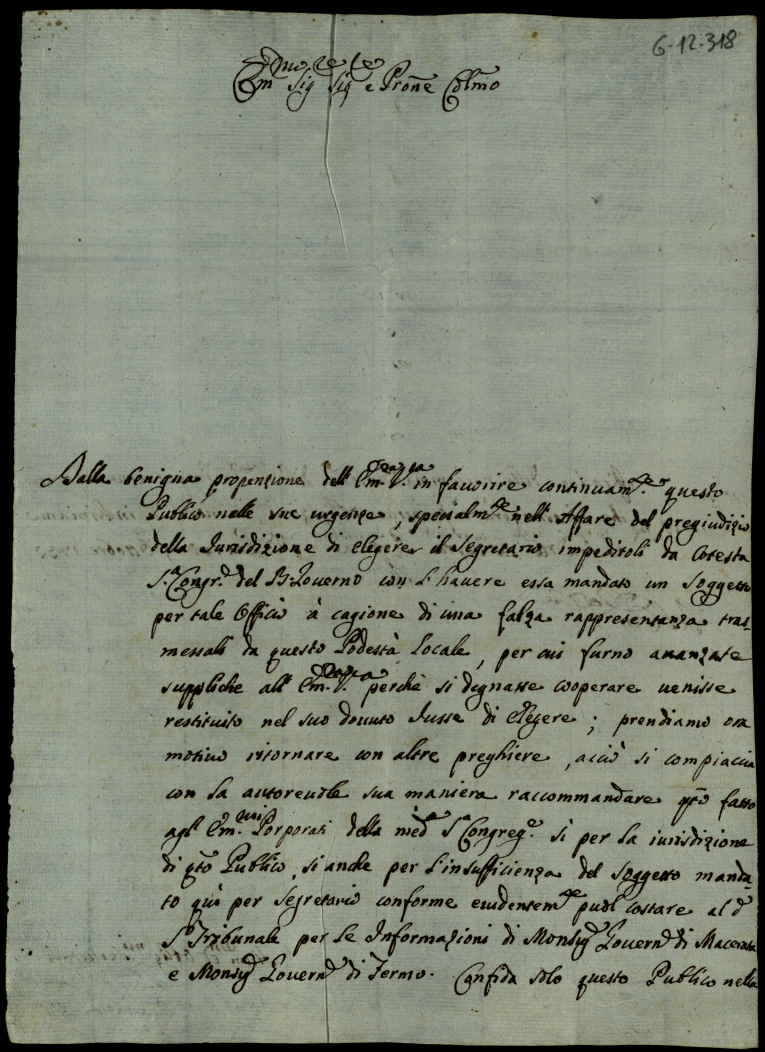 6-12-318
Em.mo Sig.re Sig.re e Prone Colmo
Dalla benigna propenzione dell'Em.za V.ra in favorire continuam.te questo
Publico nelle sue urgenze, specialm.te nell'Affare del pregiudizio
della Jurisdizione di elegere il Segretario impeditoli da cotesta
S.a Congr.e del B. Governo con l'havere essa mandato un Soggetto
per tale Officio à cagione di una falza rappresentanza tras-
messali da questo Podestà Locale, per cui furno avanzate
suppliche all'Em.za V.ra perchè si degnasse cooperare venisse
restituito nel suo dovuto Jusse di elegere; prendiamo ora
motivo ritornare con altre preghiere, acciò si compiaccia
con la autorevole sua maniera raccommandare qto fatto
agl'Em.mi Porporati della med.a S.a Congreg.e sì per la iurisdizione
di qto Publico, sì anche per l'insufficienza del Soggetto manda-
to quì per Segretario conforme evidentem.te puol costare al d.o
S. Tribunale per le Informazioni di Monsig.r Govern.re di Macerata
e Monsig.r Govern.re di Fermo. Confida solo questo Publico nella